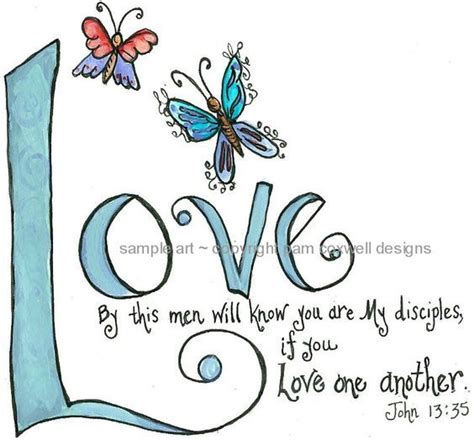 Love
sample art ~ copyright pam coxwell designs
By this men will know you are My disciples,
if you
Love one another.
John 13:35